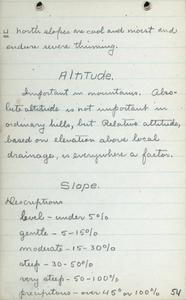 north slopes are cool and moist and
endure severe thinning.
Altitude.
Important in mountains. Abso-
lute altitude is not important in
ordinary hills, but Relative altitude,
based on elevation above local
drainage, is everywhere a factor.
Slope.
Descriptions
level - under 5%
gentle - 5-15%
moderate - 15-30%
steep - 30-50%
very steep - 50-100%
precipitous - over 45° or 100%
54